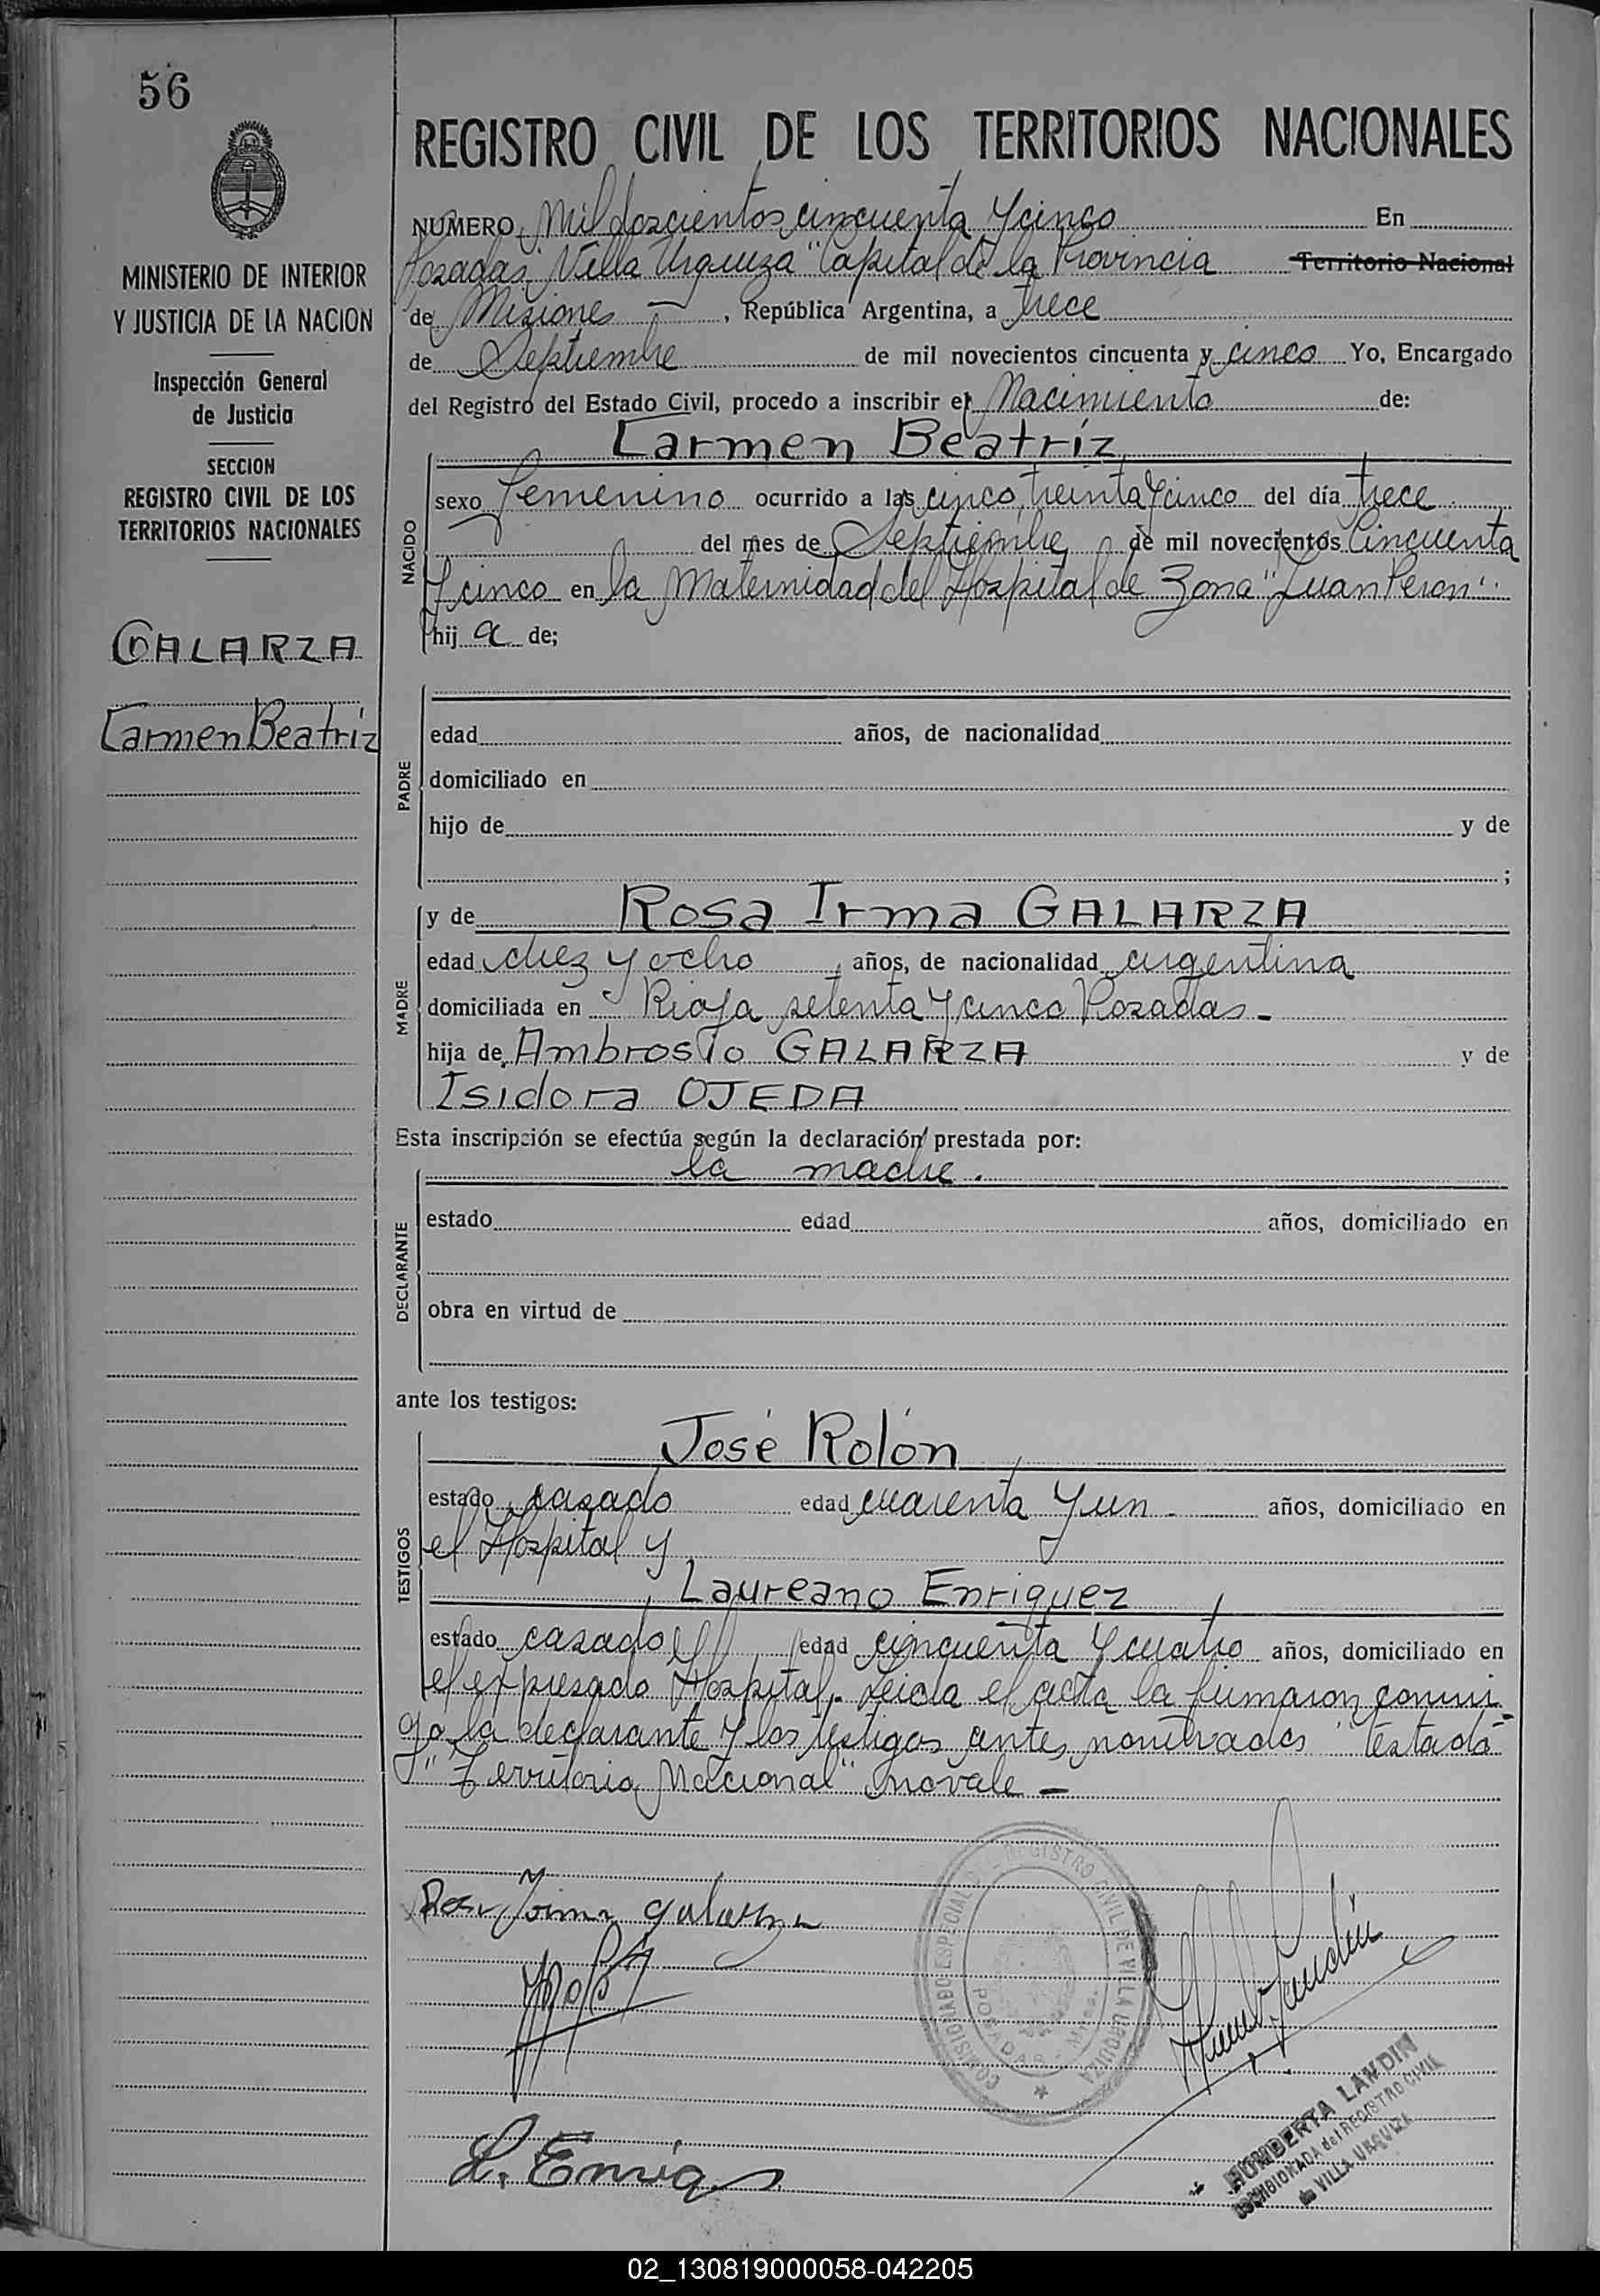 56
MINISTERIO DE INTERIOR
Y JUSTICIA DE LA NACION
Inspección General
de Justicia
SECCION
REGISTRO CIVIL DE LOS
TERRITORIOS NACIONALES
GALARZA
Carmen Beatriz
REGISTRO CIVIL DE LOS TERRITORIOS NACIONALES
NUMERO Mil doscientos cincuenta y cinco En
Posadas "Villa Urquiza" Capital de la Provincia Territorio Nacional
de Misiones —, República Argentina, a trece
de Septiembre de mil novecientos cincuenta y cinco Yo, Encargado
del Registro del Estado Civil, procedo a inscribir el Nacimiento de:
Carmen Beatriz
NACIDO
sexo femenino ocurrido a las cinco, treinta y cinco del día trece
del mes de Septiembre de mil novecientos Cincuenta
y cinco en la Maternidad del Hospital de Zona "Juan Peron"
hij a de;
PADRE
edad años, de nacionalidad
domiciliado en
hijo de y de
;
MADRE
y de Rosa Irma GALARZA
edad diez y ocho, años, de nacionalidad argentina
domiciliada en Rioja setenta y cinco Posadas -
hija de Ambrosio GALARZA y de
Isidora OJEDA
Esta inscripción se efectúa según la declaración prestada por:
la madre.
DECLARANTE
estado edad años, domiciliado en
obra en virtud de
ante los testigos:
TESTIGOS
José Rolón
estado casado edad cuarenta y un - años, domiciliado en
el Hospital y
Laureano Enriquez
estado casado edad cincuenta y cuatro años, domiciliado en
el expresado Hospital. Leida el acta la firmaron conmi-
go la declarante y los testigos antes nombrados "testado"
"Territorio Nacional" no vale -
Rosa Irma Galarza
L. Enriq
COMISIONADO ESPECIAL DEL REGISTRO CIVIL DE VILLA URQUIZA
POSADAS - Mnes.
HUMBERTA LANDIN
COMISIONADA del REGISTRO CIVIL
de VILLA URQUIZA
02_130819000058-042205